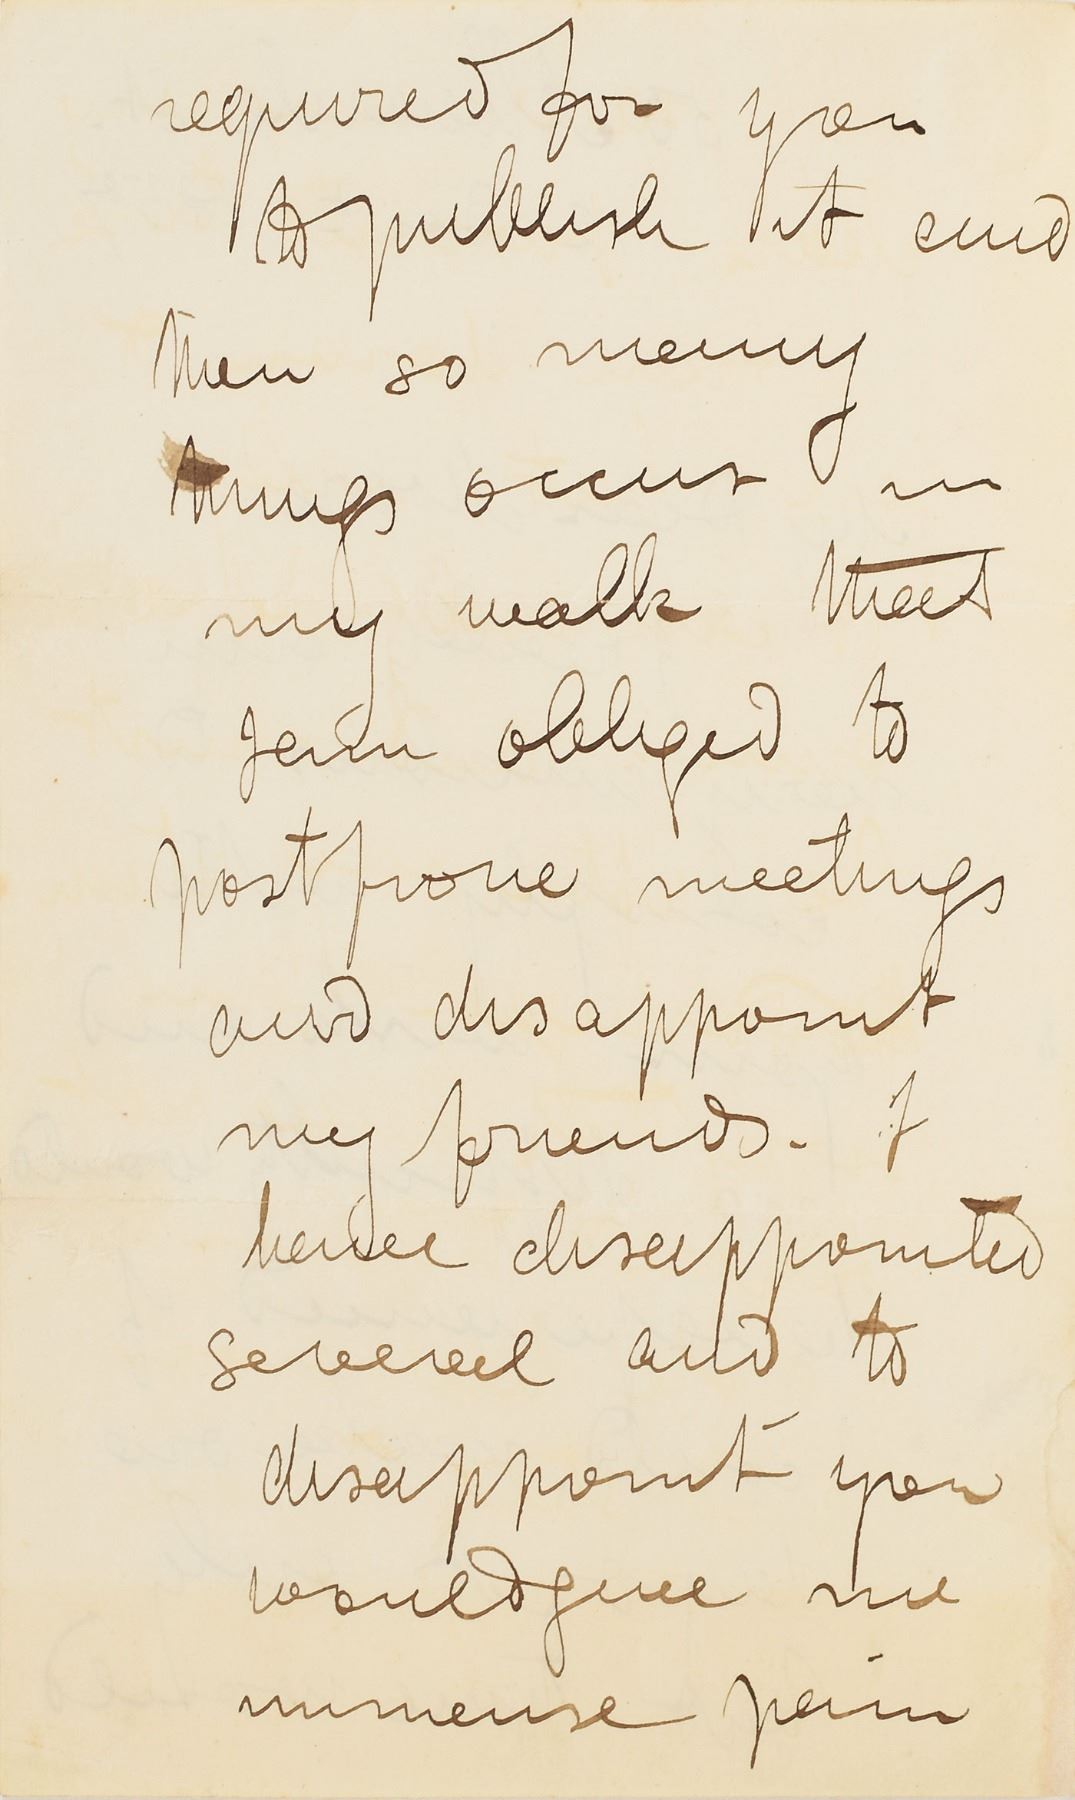 required for you
to publish it and
then so many
things occur in
my walk that
I am obliged to
postpone meetings
and disappoint
my friends. I
have disappointed
several and to
disappoint you
would give me
immense pain